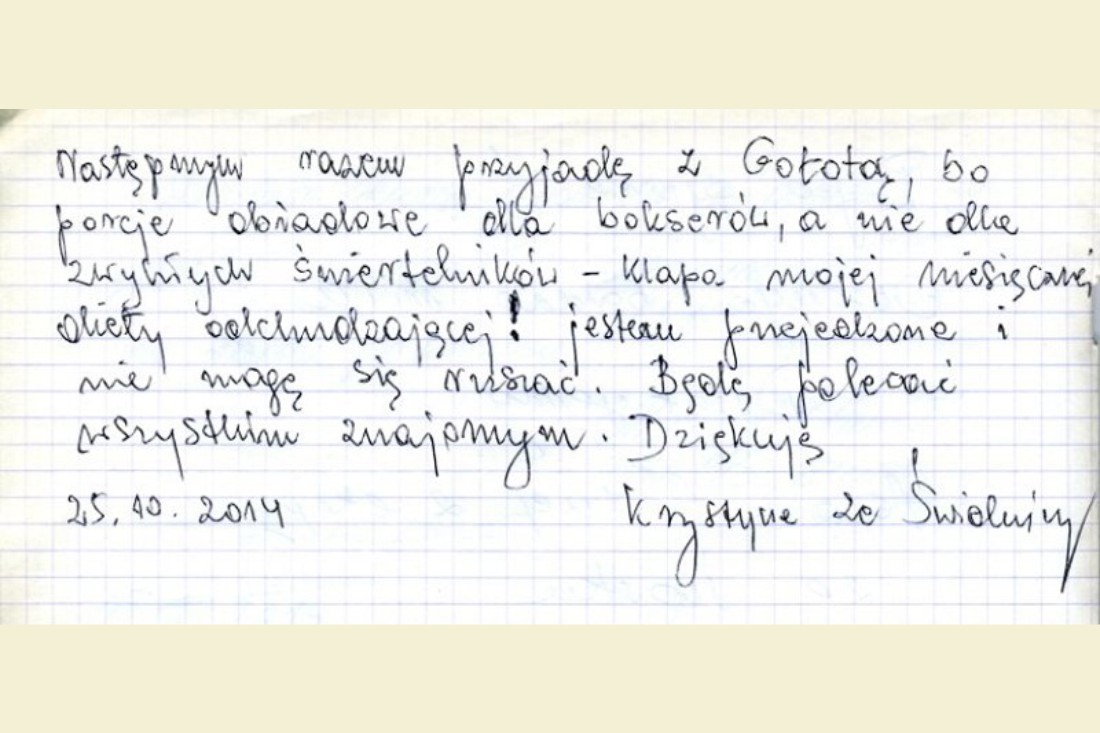 Następnym razem przyjadę z Gołotą, bo
porcje obiadowe dla bokserów, a nie dla
zwykłych śmiertelników - klapa mojej miesięcznej
diety odchudzającej! jestem przejedzona i
nie mogę się ruszać. Będę polecać
wszystkim znajomym. Dziękuję
25.10.2014 Krystyna ze Świdnicy